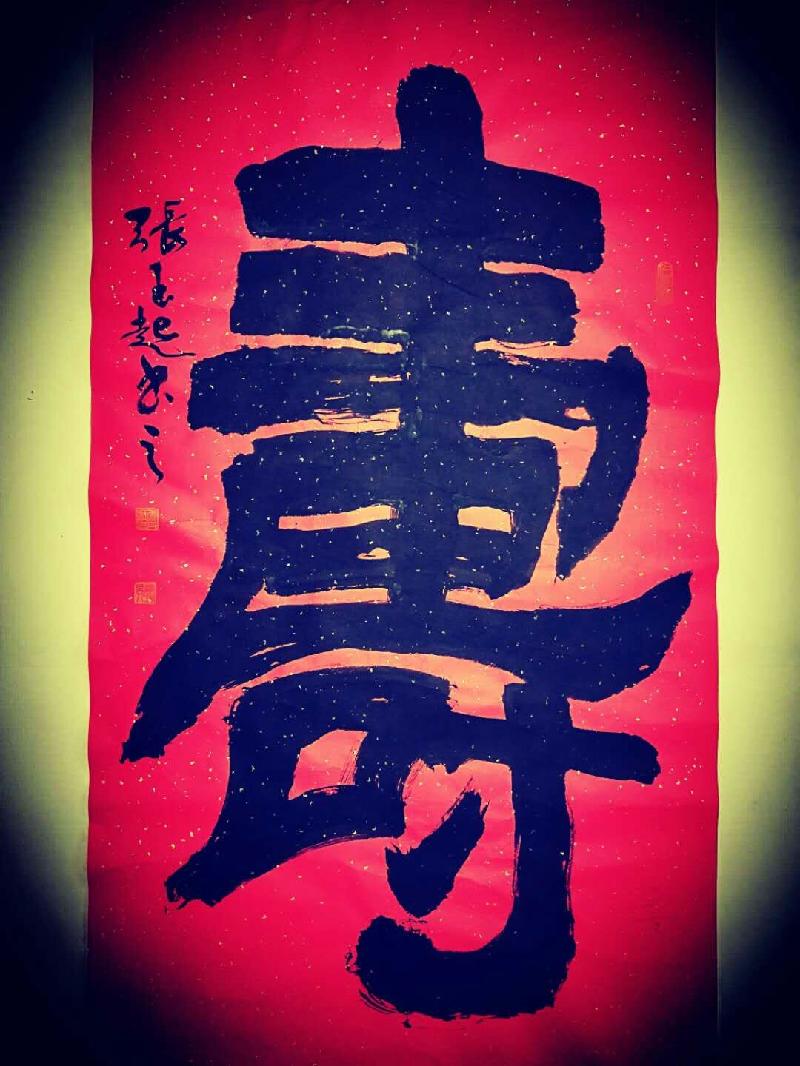 壽
張玉起书之